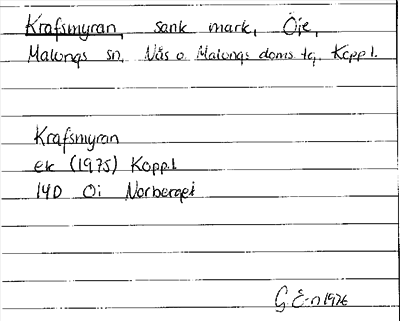 Krafsmyran, sank mark, Öje,
Malungs sn, Nås o. Malungs doms tg, Koppl.
Krafsmyran
ek (1975) Koppl
14D Oi Norberget
G. E-n 1976